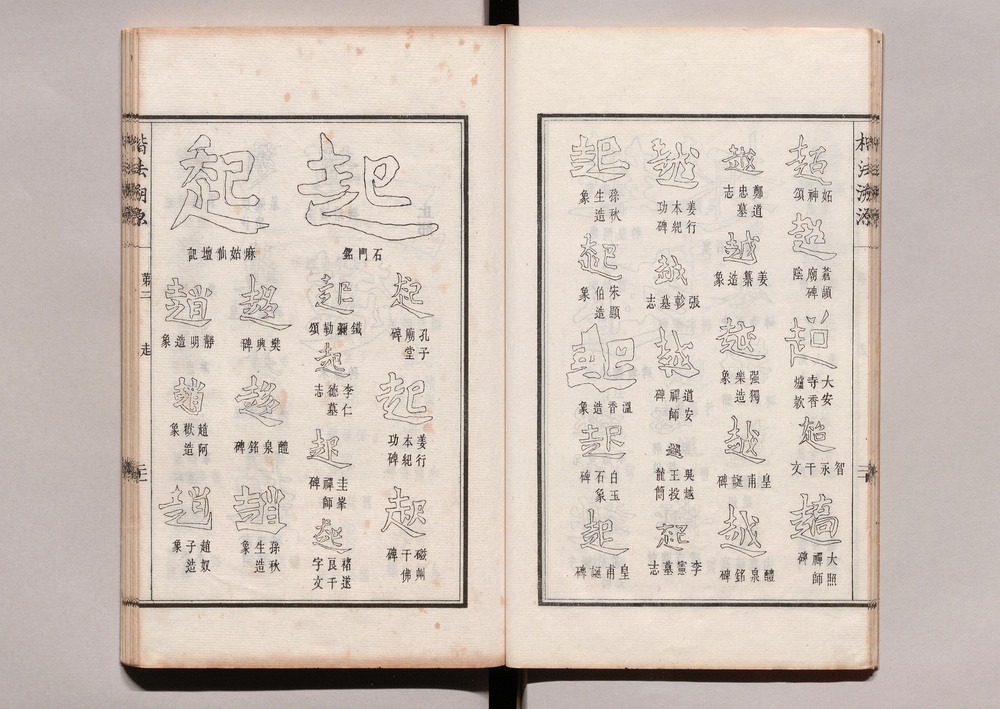 楷法溯源
超
妬神頌
超
蒼頡廟碑陰
超
大安寺香爐款
超
智永千文
趫
大照禪師碑
越
鄭道忠墓志
越
姜纂造象
越
强獨樂造象
越
皇甫誕碑
越
醴泉銘碑
越
姜行本紀功碑
越
張軫墓志
越
道安禪師碑
越
吳越王投龍簡
起
李憲墓志
起
孫秋生造象
起
朱顯伯造象
起
溫香造象
起
白玉石象碑
起
皇甫誕碑
起
石門銘
起
孔子廟堂碑
起
姜行本紀功碑
起
磁州千佛碑
起
鐵彌勒頌
起
李仁德墓志
起
圭峯禪師碑
起
褚遂良千字文
起
麻姑仙壇記
趨
樊興碑
趨
醴泉銘碑
趙
孫秋生造象
趙
靜明造象
趙
趙阿歡造象
趙
趙奴子造象
楷法溯源
第二
走